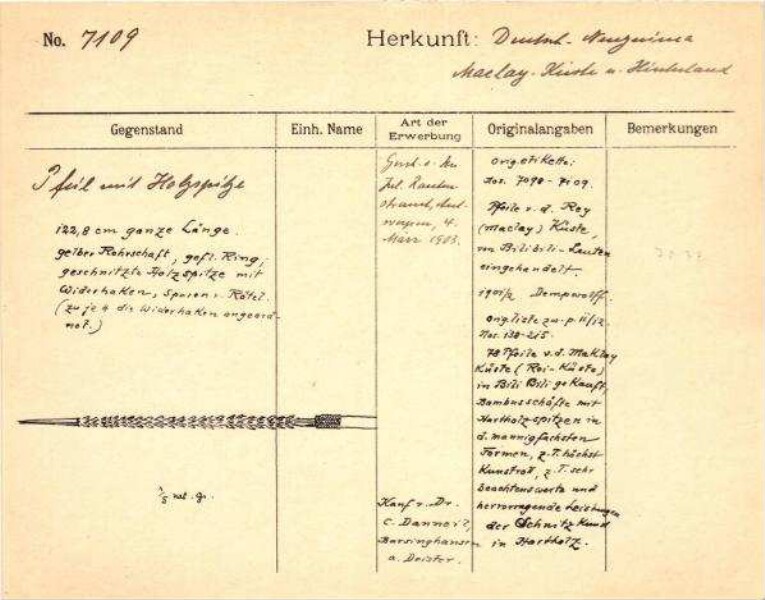 No. 7109
Herkunft: Deutsch-Neuguinea
Maclay-Küste u. Hinterland
Gegenstand
Einh. Name
Art der Erwerbung
Originalangaben
Bemerkungen
Pfeil mit Holzspitze
122,8 cm ganze Länge.
gelber Rohrschaft, gefl. Ring,
geschnitzte Holzspitze mit
Widerhaken, Spuren v. Rötel.
(zu je 4 die Widerhaken angeord-
net.)
1/5 nat. gr.
Gesch. v.
Jul. Rauten-
strauch, Ant-
werpen, 4.
März 1903.
Kauf v. Dr.
C. Danneil,
Barsinghausen
a. Deister.
Orig. etikette:
Nos. 7098-7109.
Pfeile v. d. Rey
(Maclay) Küste,
von Bilibili-Leuten
eingehandelt.
Dempwolff.
orig. liste
Nos. 138-215.
78 Pfeile v. d. Maklay
Küste (Rai-Küste)
in Bili Bili gekauft,
Bambusschäfte mit
Hartholzspitzen in
d. mannigfachsten
Formen, z.T. höchst
kunstvoll, z.T. sehr
beachtenswerte und
hervorragende Leistungen
der Schnitzkunst
in Hartholz.